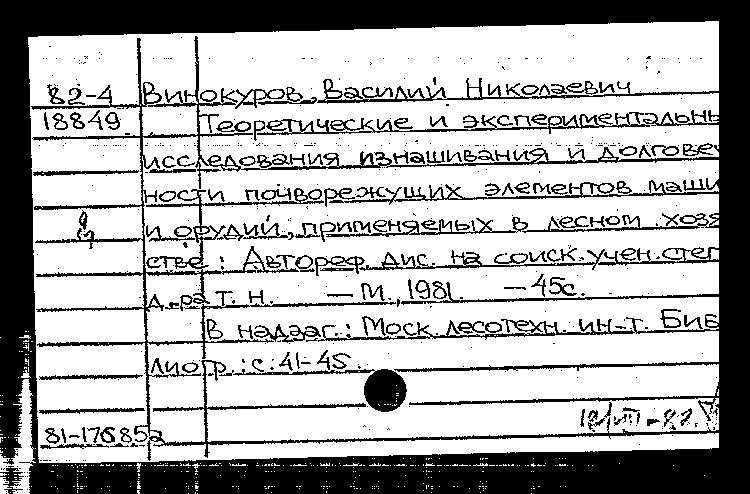 82-4 Винокуров, Василий Николаевич
18849 Теоретические и экспериментальны
исследования изнашивания и долгове
ности почворежущих элементов маши
и орудий, применяемых в лесном хозя
стве: Автореф. дис. на соиск. учен. степ
д-ра т. н. — М., 1981. — 45с.
В надзаг.: Моск. лесотехн. ин-т. Биб
лиогр.: с. 41-45.
81-17685а